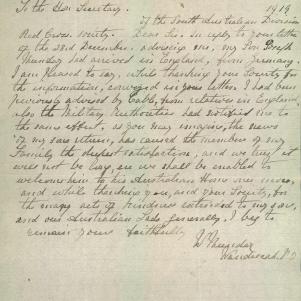 To the Hon Secretary. 1919
of the South Australian Division
Red Cross Society. Dear Sir. In reply to your letter
of the 28rd December, advising me, my Son Joseph
Thunday had arrived in England, from Germany.
I am pleased to say, while thanking your Society for
the information, conveyed in your letter, I had been
previously advised by cable, from relatives in England
also the Military Authorities had notified me to
the same effect, as you may imagine, the news
of my sons return, has caused the members of my
Family the deepest satisfaction, and we trust it
will not be long ere we shall be enabled to
welcome him to his Australian Home once more,
and while thanking you, and your Society, for
the many acts of kindness extended to my son,
and our Australian Lads generally, I beg to
remain yours faithfully